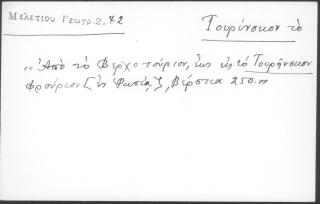 Μελετίου Γεωγρ. 2. 42
Τουρίνσκον τὸ
„ Ἀπὸ τὸ Βερχοτούριον, ἕως εἰς τὸ Τουρῆνσκον
φρούριον [ἐν Ρωσίᾳ;], Βέρστια 250. »